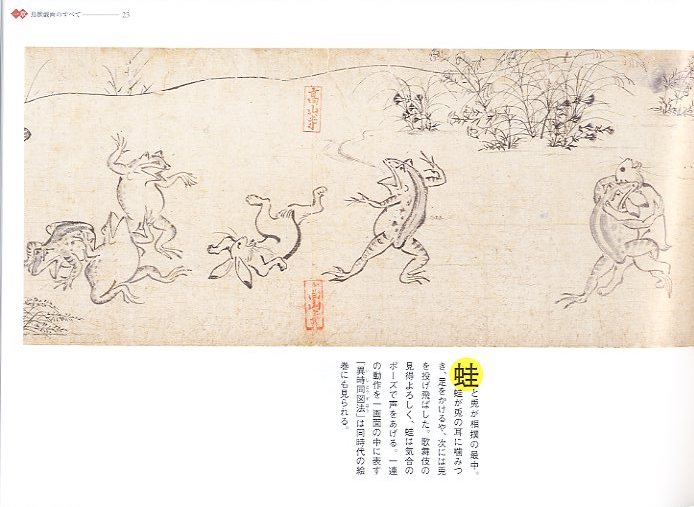 鳥獣戯画のすべて 23
高山寺
高山寺
蛙と兎が相撲の最中。
蛙が兎の耳に噛みつ
き、足をかけるや、次には兎
を投げ飛ばした。歌舞伎の
見得よろしく、蛙は気合の
ポーズで声をあげる。一連
の動作を一画面の中に表す
「異時同図法」は同時代の絵
巻にも見られる。